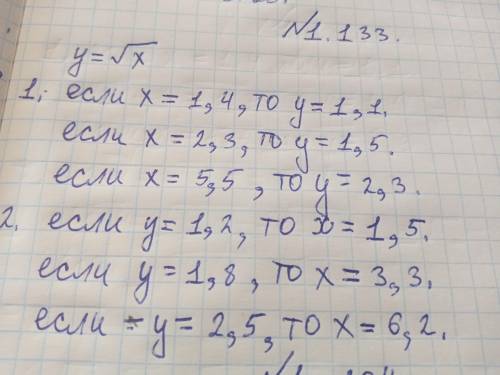 №1.133.
y=√x
1; если x=1,4, то y=1,1.
если x=2,3, то y=1,5.
если x=5,5, то y=2,3.
2. если y=1,2, то x=1,5.
если y=1,8, то x=3,3.
если y=2,5, то x=6,2.